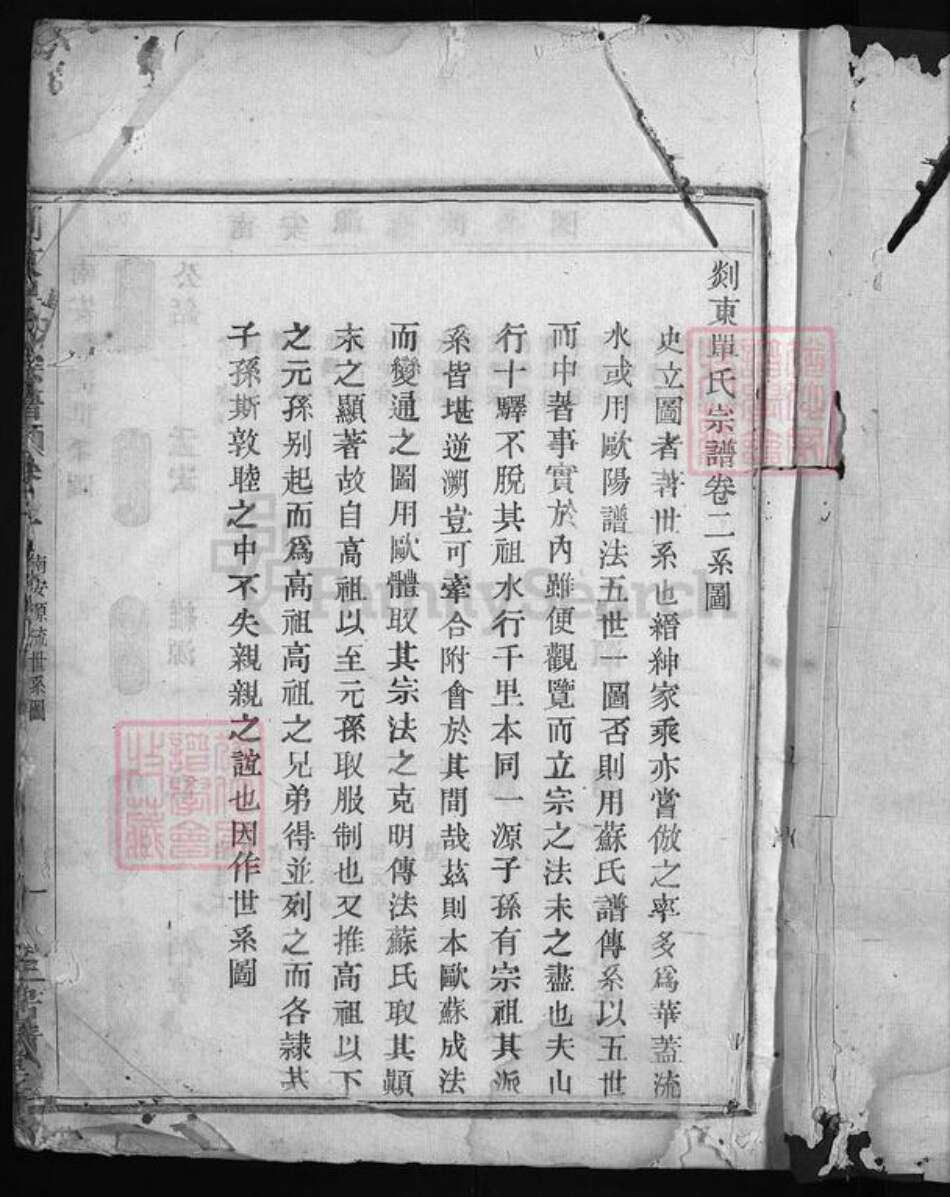 剡東單氏宗譜卷二系圖
史立圖者著世系也縉紳家乘亦嘗倣之率多爲華蓋流
水或用歐陽譜法五世一圖否則用蘇氏譜傳系以五世
而中著事實於內雖便觀覽而立宗之法未之盡也夫山
行十驛不脫其祖水行千里本同一源子孫有宗祖其派
系皆堪逆溯豈可牽合附會於其間哉茲則本歐蘇成法
而變通之圖用歐體取其宗法之克明傳法蘇氏取其顚
末之顯著故自高祖以至元孫取服制也又推高祖以下
之元孫别起而爲高祖高祖之兄弟得並列之而各隷其
子孫斯敦睦之中不失親親之誼也因作世系圖
南安源流世系圖
一
FamilySearch